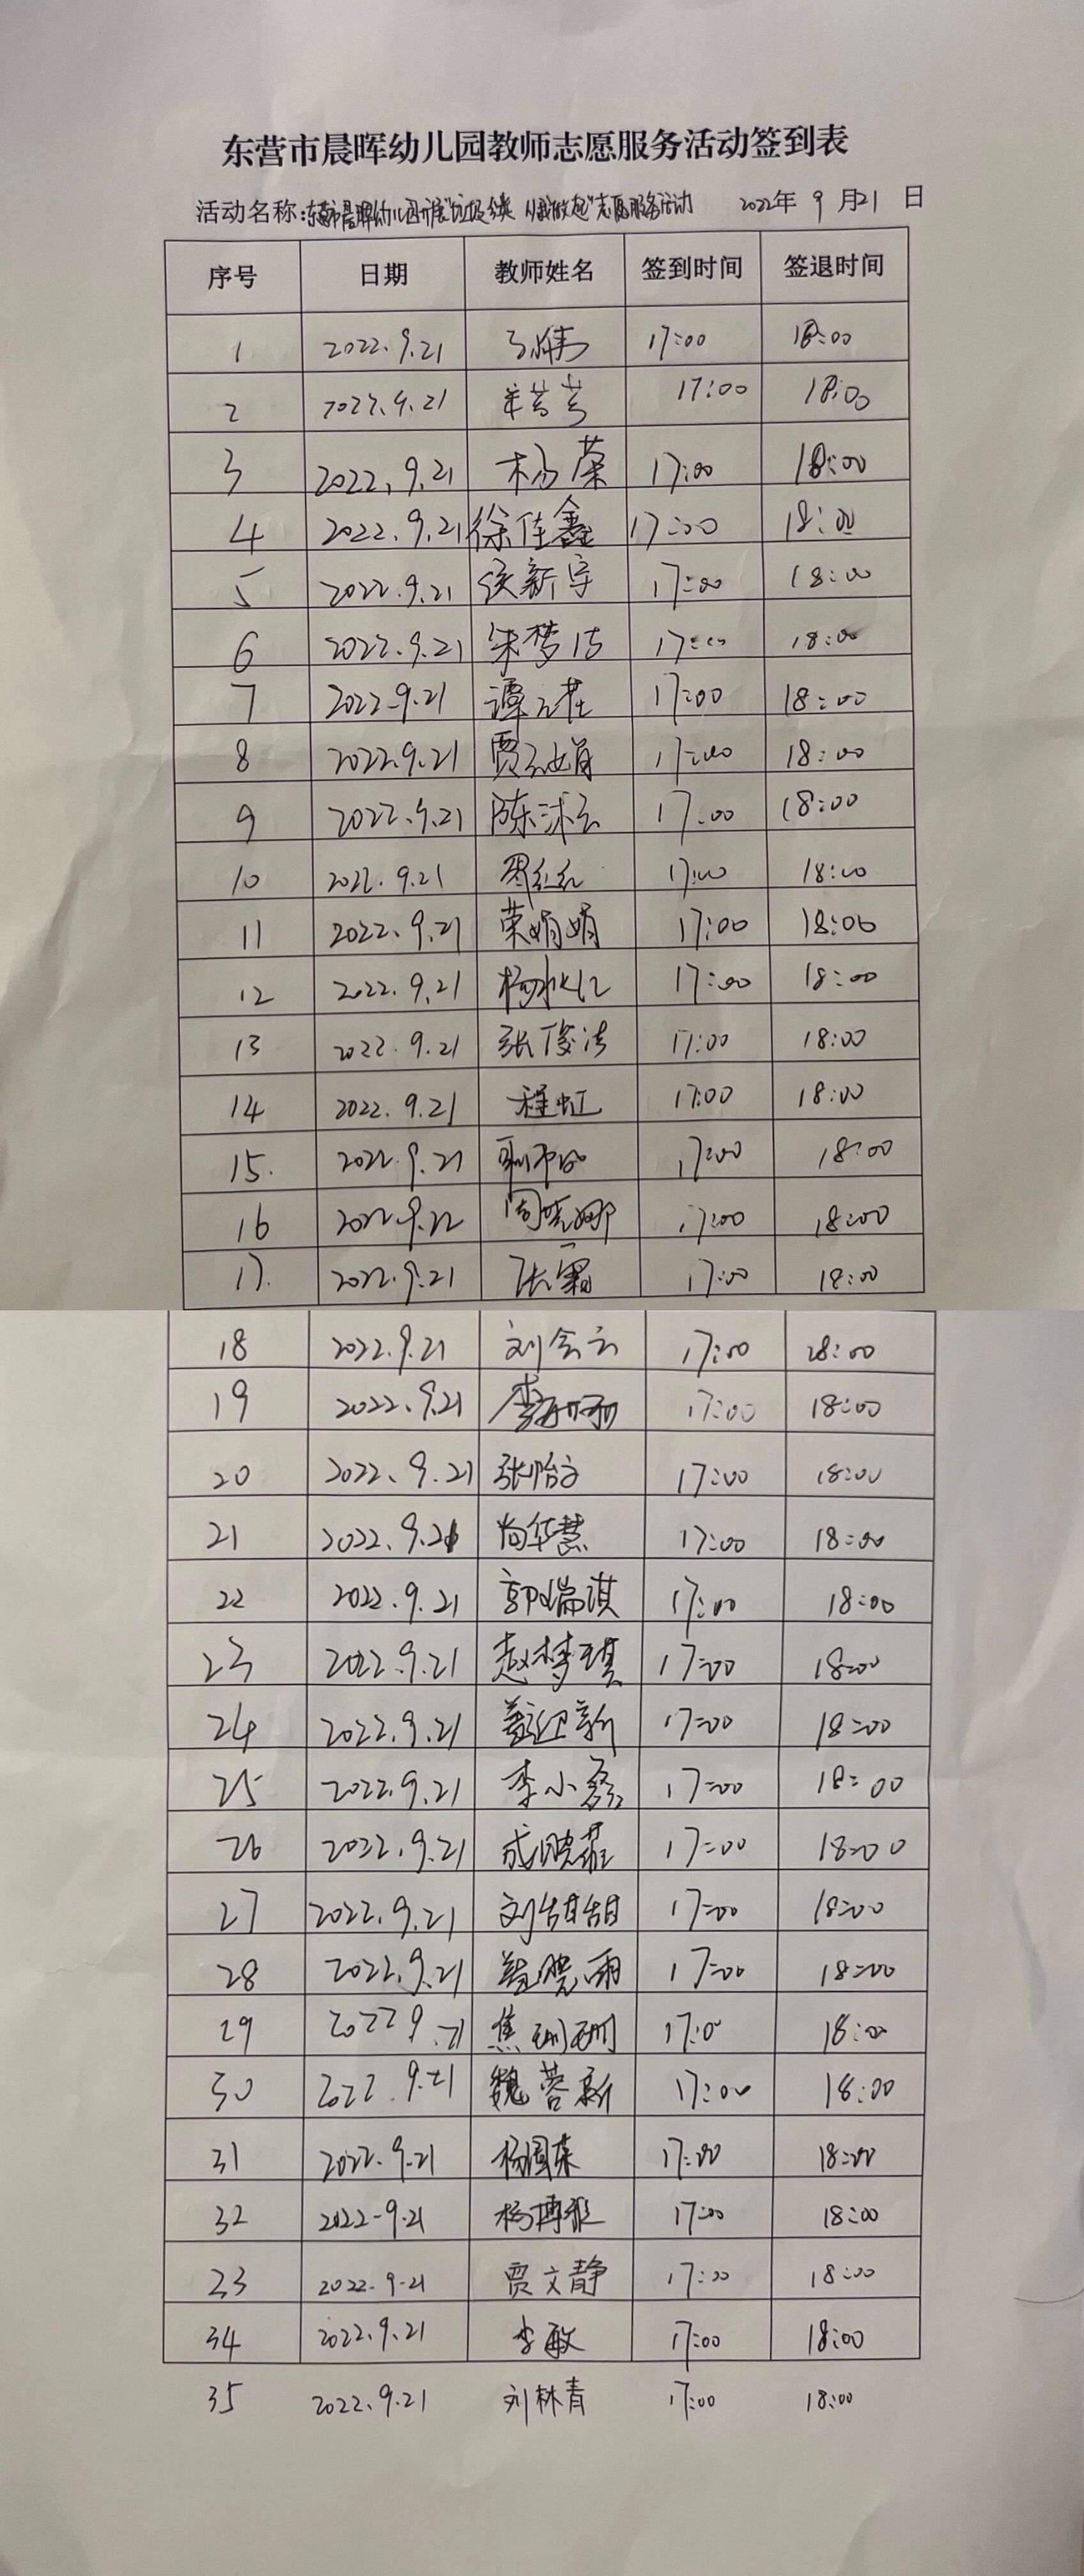 东营市晨晖幼儿园教师志愿服务活动签到表
活动名称:东营市晨晖幼儿园开展"垃圾分类 从我做起"志愿服务活动 2022年 9 月21 日
序号 日期 教师姓名 签到时间 签退时间
1 2022.9.21 17:00 18:00
2 2022.9.21 17:00 18:00
3 2022.9.21 杨荣 17:00 18:00
4 2022.9.21 徐佳鑫 17:00 18:00
5 2022.9.21 侯新宇 17:00 18:00
6 2022.9.21 朱梦洁 17:00 18:00
7 2022.9.21 谭 17:00 18:00
8 2022.9.21 贾 娟 17:00 18:00
9 2022.9.21 陈沭云 17:00 18:00
10 2022.9.21 17:00 18:00
11 2022.9.21 荣娟娟 17:00 18:00
12 2022.9.21 杨 17:00 18:00
13 2022.9.21 张俊洁 17:00 18:00
14 2022.9.21 程虹 17:00 18:00
15. 2022.9.21 17:00 18:00
16 2022.9.22 周晓娜 17:00 18:00
17. 2022.9.21 张霜 17:00 18:00
18 2022.9.21 刘会云 17:00 18:00
19 2022.9.21 李 17:00 18:00
20 2022.9.21 张怡文 17:00 18:00
21 2022.9.21 尚华慧 17:00 18:00
22 2022.9.21 郭瑞淇 17:00 18:00
23 2022.9.21 赵梦琪 17:00 18:00
24 2022.9.21 迎新 17:00 18:00
25 2022.9.21 李小磊 17:00 18:00
26 2022.9.21 成晓 17:00 18:00
27 2022.9.21 刘甜甜 17:00 18:00
28 2022.9.21 晓雨 17:00 18:00
29 2022 9.21 焦珊珊 17:00 18:00
30 2022.9.21 魏蓉新 17:00 18:00
31 2022.9.21 杨国荣 17:00 18:00
32 2022-9.21 杨博雅 17:00 18:00
23 2022.9.21 贾文静 17:00 18:00
34 2022.9.21 李敏 17:00 18:00
35 2022.9.21 刘林青 17:00 18:00